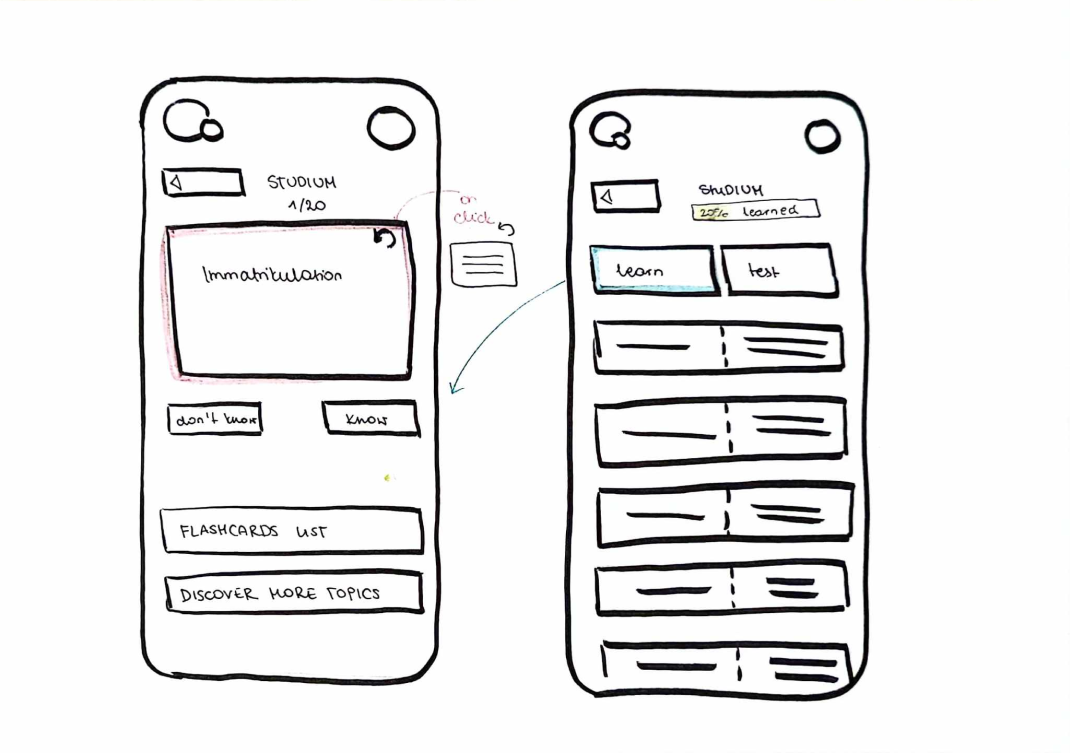 STUDIUM
1/20
on
click
Immatrikulation
don't know
know
FLASHCARDS LIST
DISCOVER MORE TOPICS
STUDIUM
20% learned
learn
test